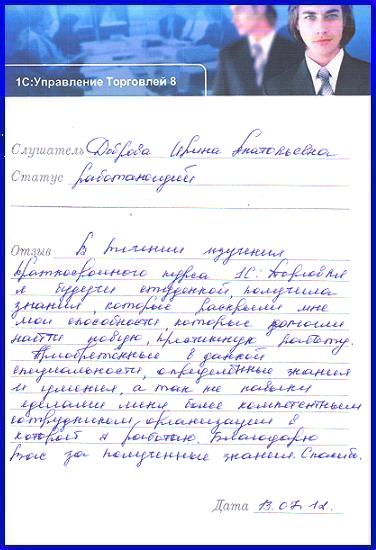 1С:Управление Торговлей 8
Слушатель Доброва Ирина Анатольевна
Статус работающий
Отзыв В течении изучения
краткосрочного курса 1С: Торговля
я будучи студенткой, получила
знания, которые раскрыли мне
мои способности, которые помогли
найти новую, престижную работу.
Приобретённые в данной
специальности, определённые знания
и умения, а так же навыки
сделали меня более компетентным
сотрудником организации в
которой я работаю. Благодарю
Вас за полученные знания. Спасибо.
Дата 13.07.12.